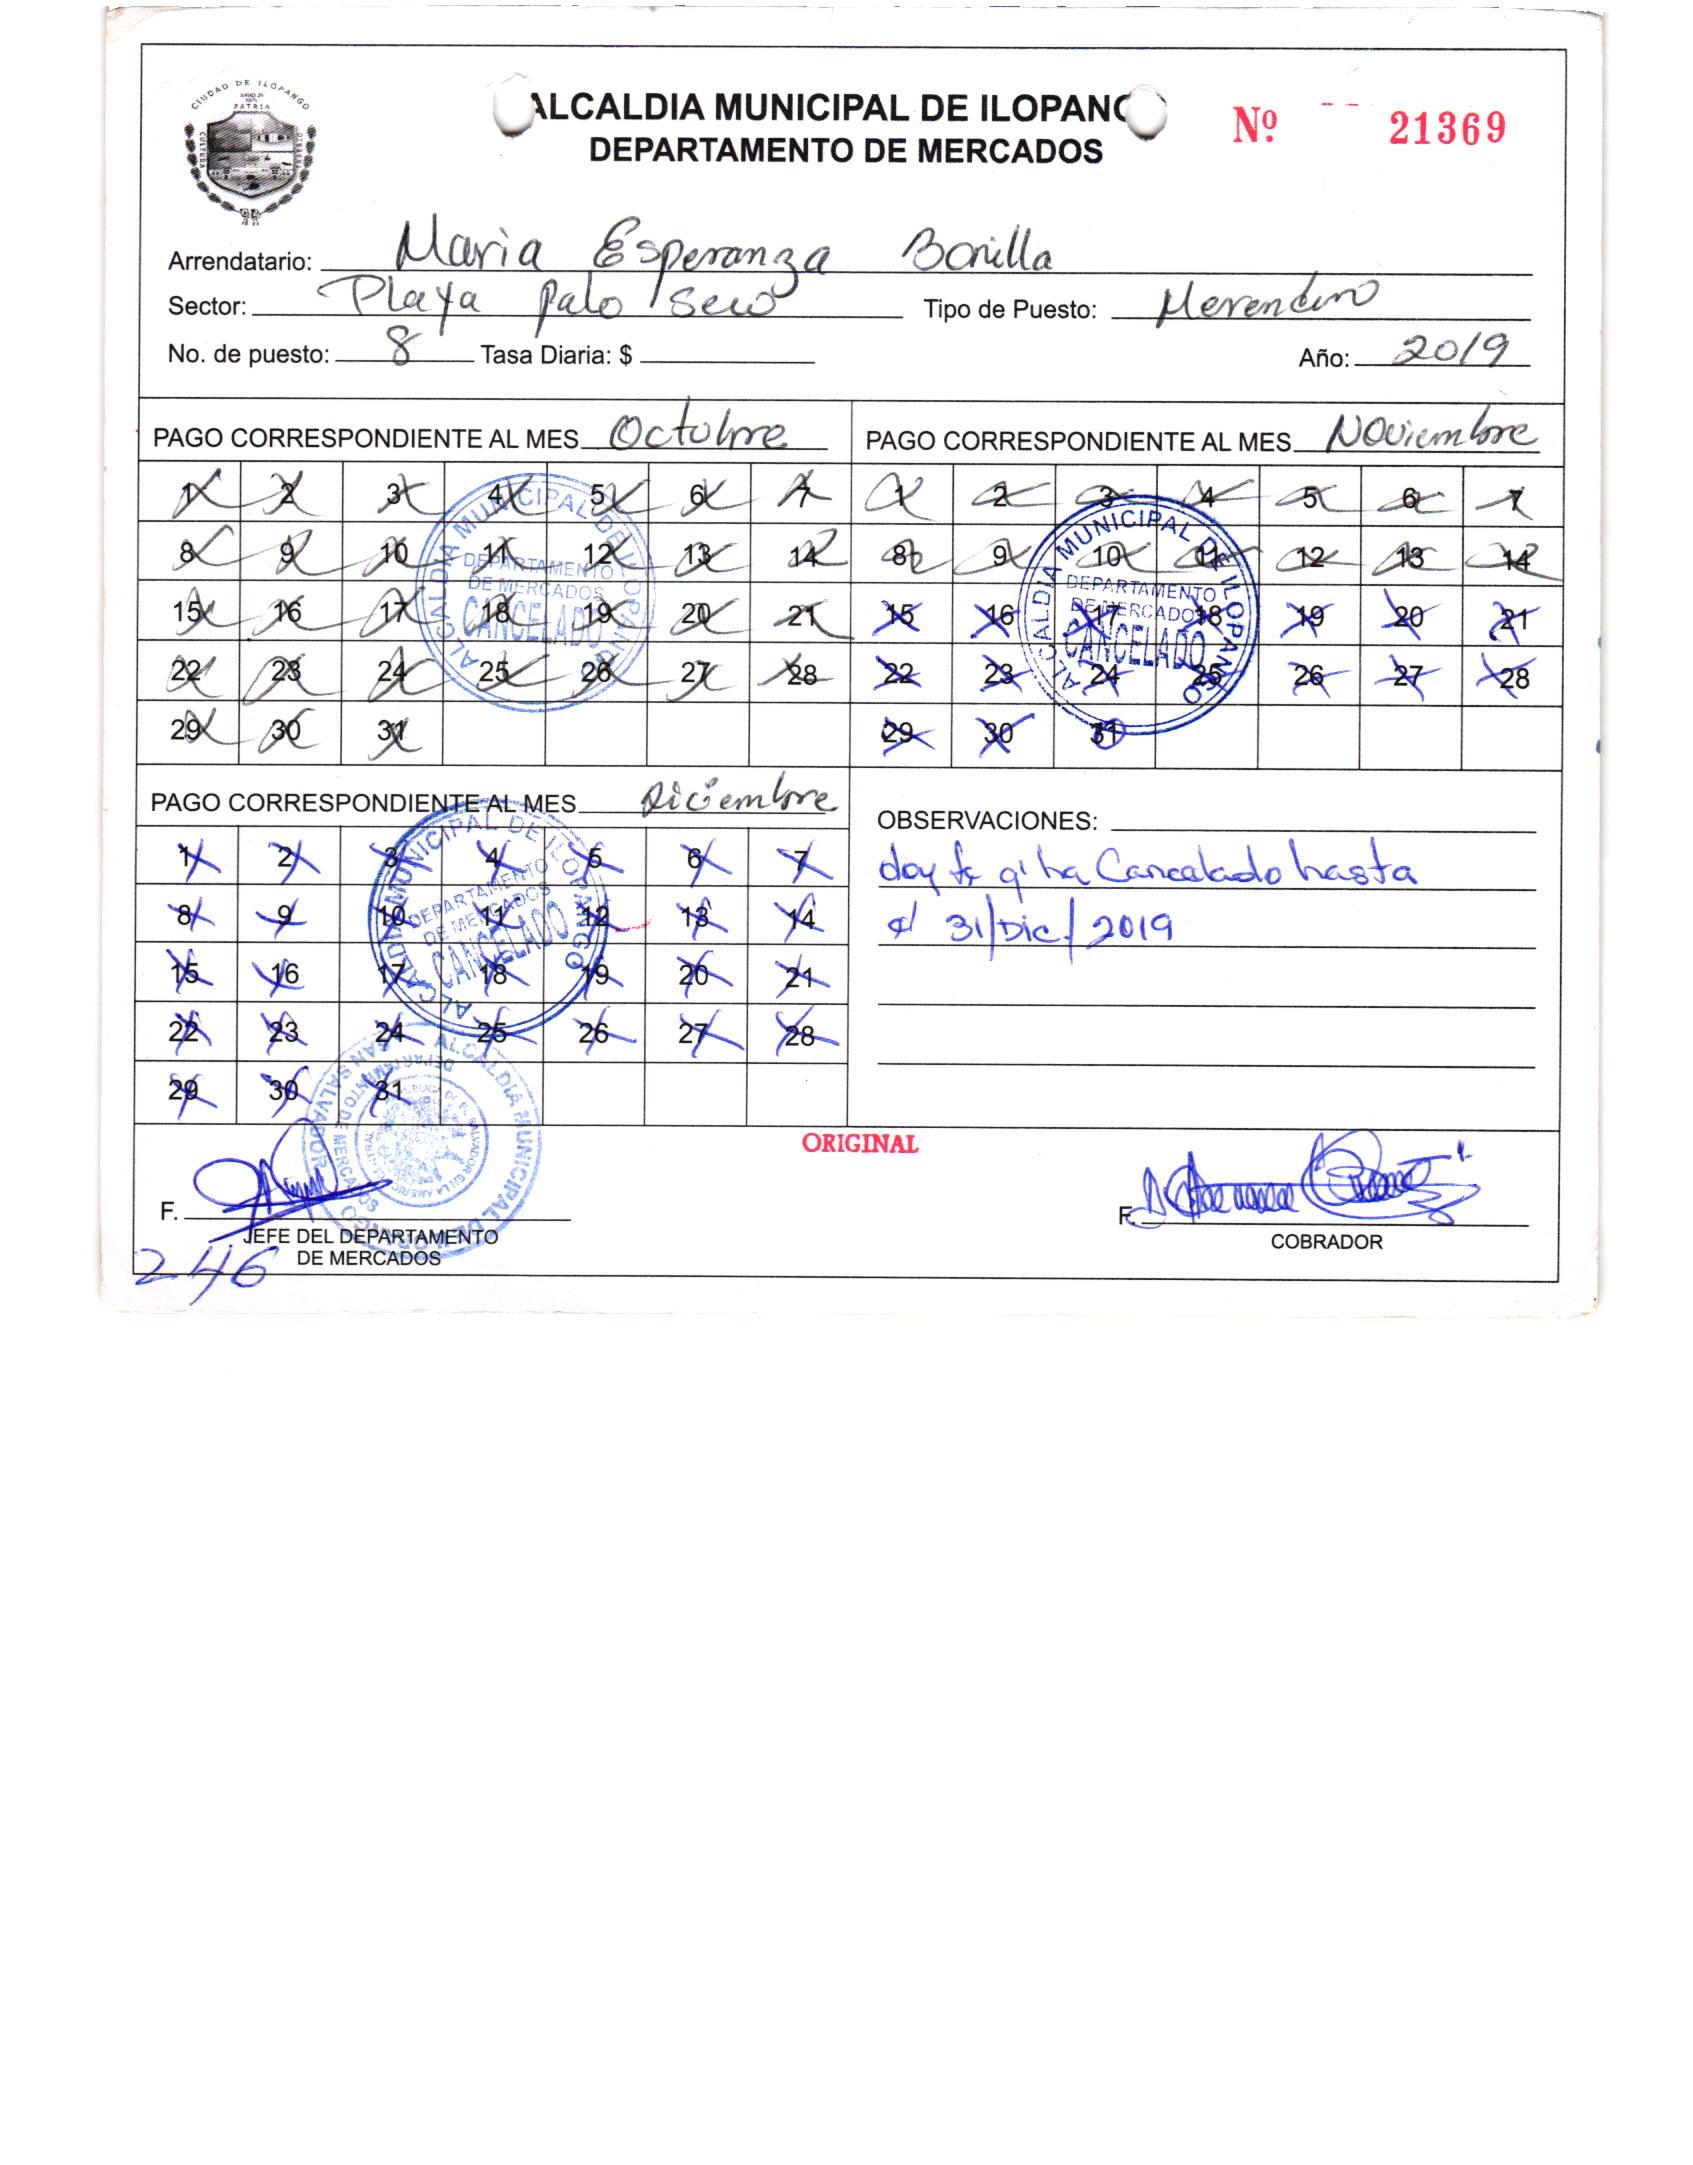 CIUDAD DE ILOPANGO
PATRIA
CULTURA
ALCALDIA MUNICIPAL DE ILOPANG
DEPARTAMENTO DE MERCADOS
Nº 21369
Arrendatario: Maria Esperanza Bonilla
Sector: Playa Palo Seco Tipo de Puesto: Merendero
No. de puesto: 8 Tasa Diaria: $ Año: 2019
PAGO CORRESPONDIENTE AL MES Octubre
1 2 3 4 5 6 7
8 9 10 11 12 13 14
15 16 17 18 19 20 21
22 23 24 25 26 27 28
29 30 31
ALCALDIA MUNICIPAL DE ILOPANGO
DEPARTAMENTO
DE MERCADOS
CANCELADO
PAGO CORRESPONDIENTE AL MES Noviembre
1 2 3 4 5 6 7
8 9 10 11 12 13 14
15 16 17 18 19 20 21
22 23 24 25 26 27 28
29 30 31
ALCALDIA MUNICIPAL DE ILOPANGO
DEPARTAMENTO
DE MERCADOS
CANCELADO
PAGO CORRESPONDIENTE AL MES Diciembre
1 2 3 4 5 6 7
8 9 10 11 12 13 14
15 16 17 18 19 20 21
22 23 24 25 26 27 28
29 30 31
ALCALDIA MUNICIPAL DE ILOPANGO
DEPARTAMENTO
DE MERCADOS
CANCELADO
OBSERVACIONES:
doy fe q' ha Cancelado hasta
el 31/Dic/2019
ALCALDIA MUNICIPAL DE ILOPANGO
DEPARTAMENTO DE MERCADOS
SAN SALVADOR
ORIGINAL
F.
JEFE DEL DEPARTAMENTO
DE MERCADOS
246
F.
COBRADOR